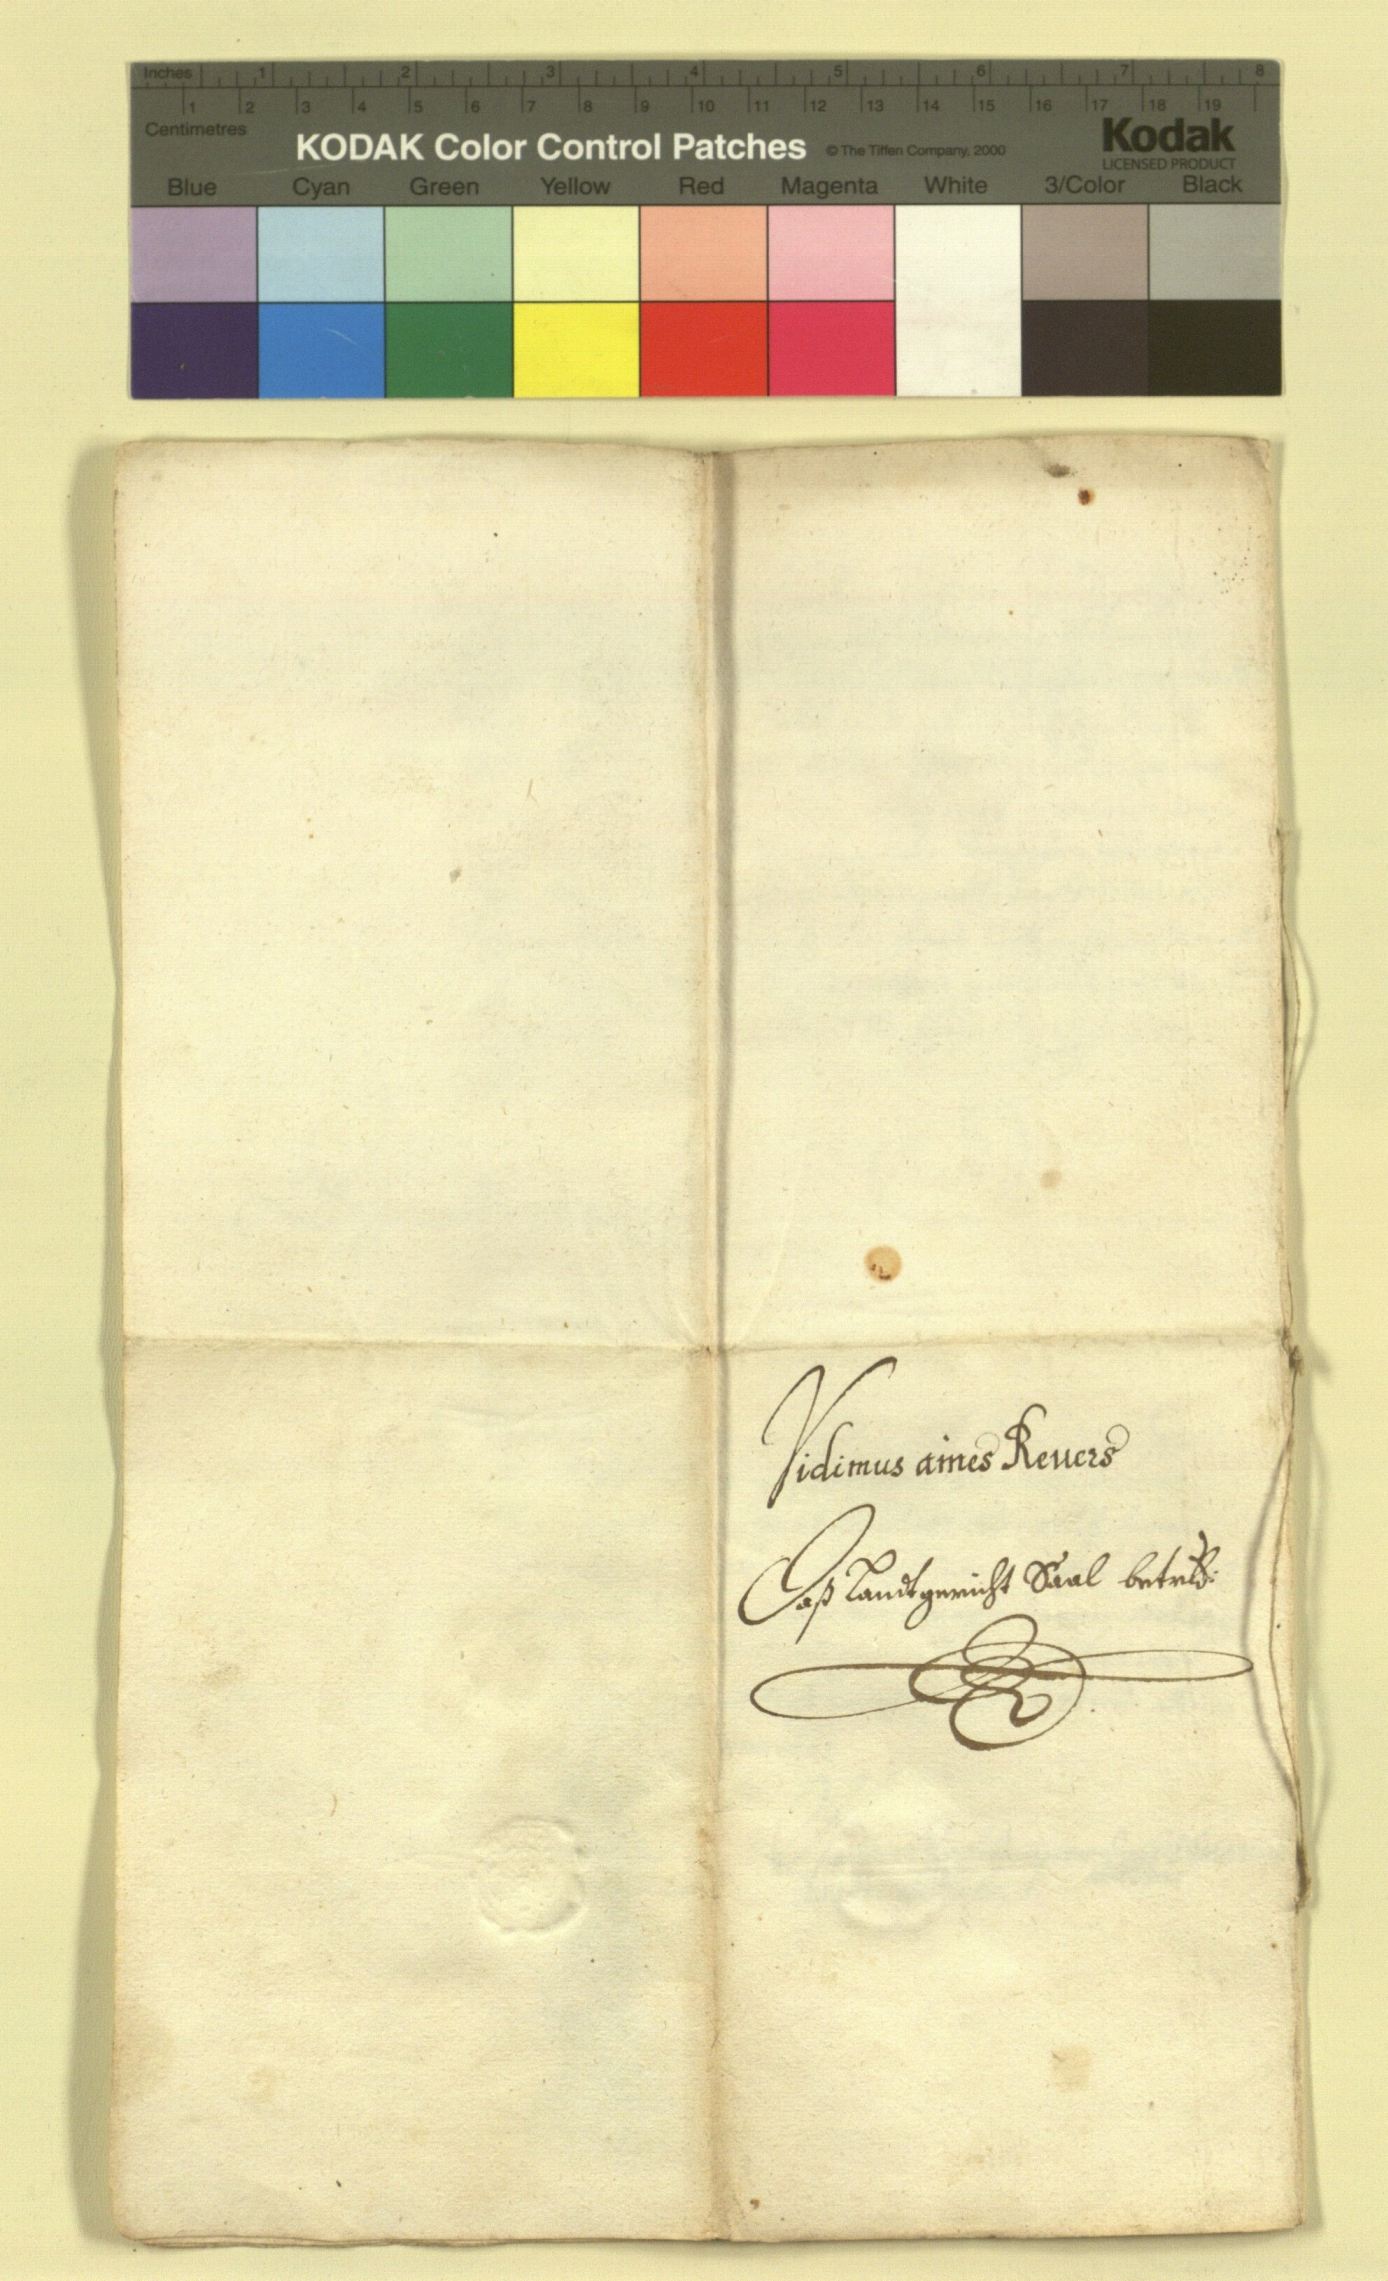 Inches 1 2 3 4 5 6 7 8
1 2 3 4 5 6 7 8 9 10 11 12 13 14 15 16 17 18 19
Centimetres
KODAK Color Control Patches © The Tiffen Company, 2000 Kodak
LICENSED PRODUCT
Blue Cyan Green Yellow Red Magenta White 3/Color Black
Vidimus aines Reuers
Daß Landtgericht Saal